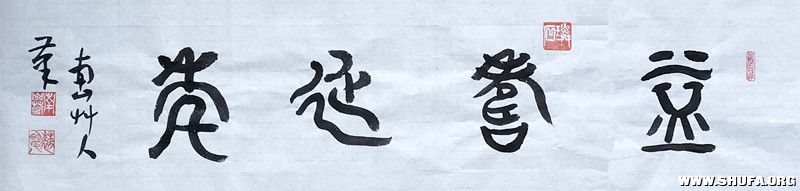 益壽延年
南山艸人
WWW.SHUFA.ORG